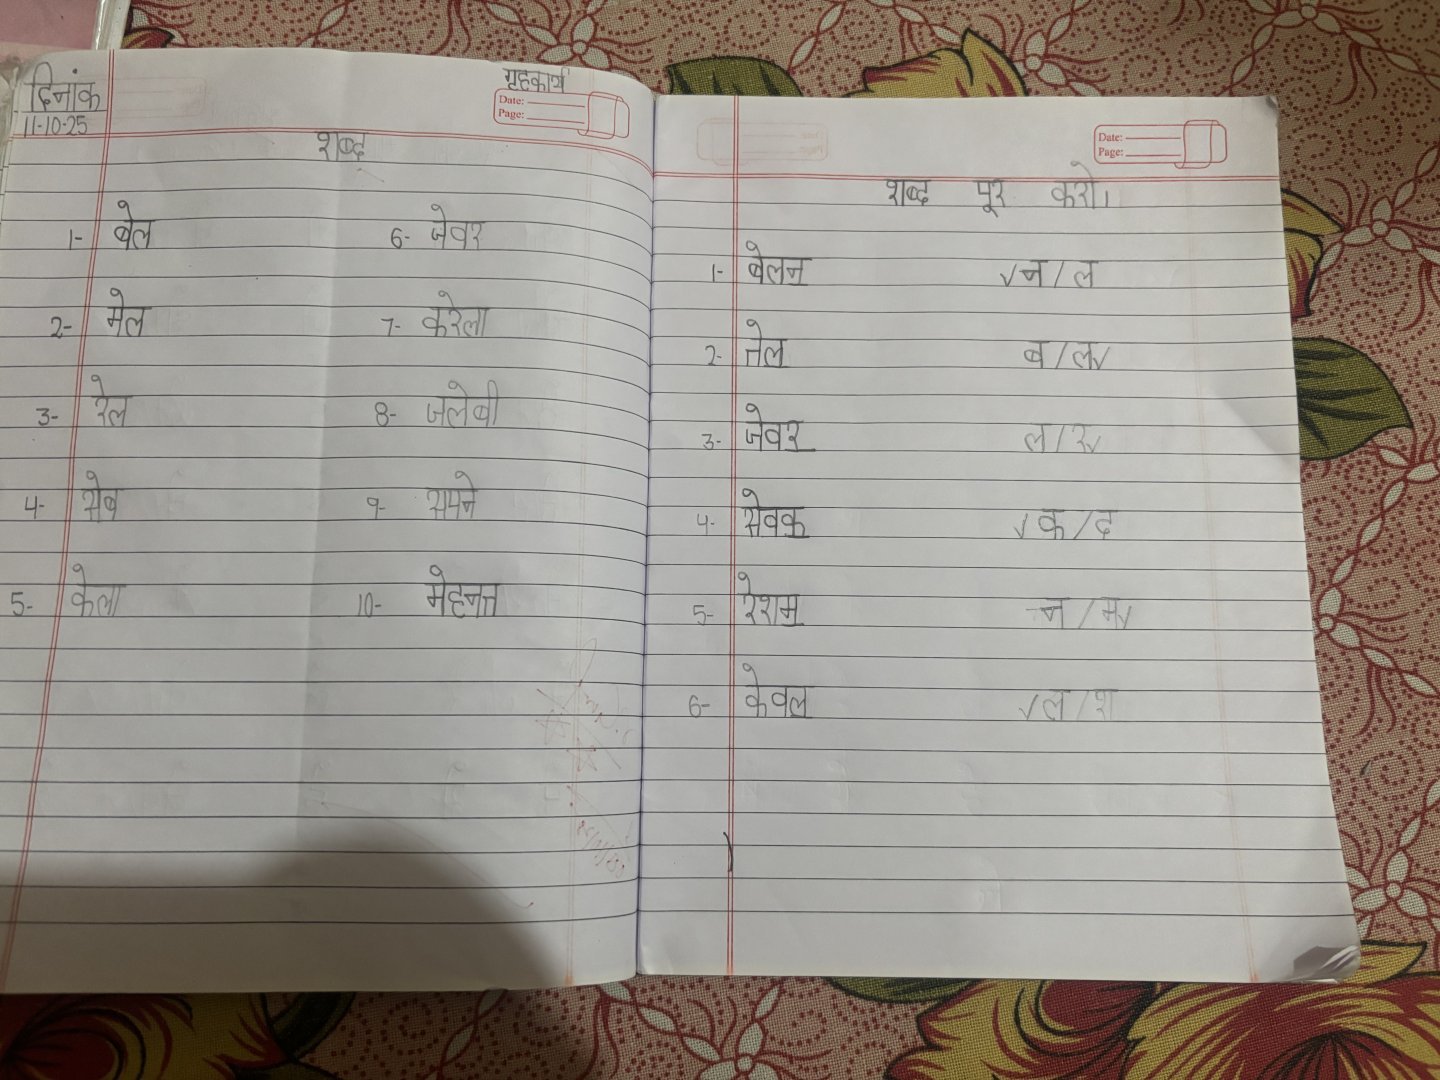 दिनांक
11-10-25
गृहकार्य
Date:
Page:
शब्द
1- बेल
2- मेल
3- रेल
4- सेब
5- केला
6- जेवर
7- करेला
8- जलेबी
9- सपने
10- मेहनत
Date:
Page:
शब्द पूर करो।
1- बेलन ✓न / ल
2- तेल ब / ल✓
3- जेवर ल / र✓
4- सेवक ✓क / द
5- रेशम न / म✓
6- केवल ✓ल / श